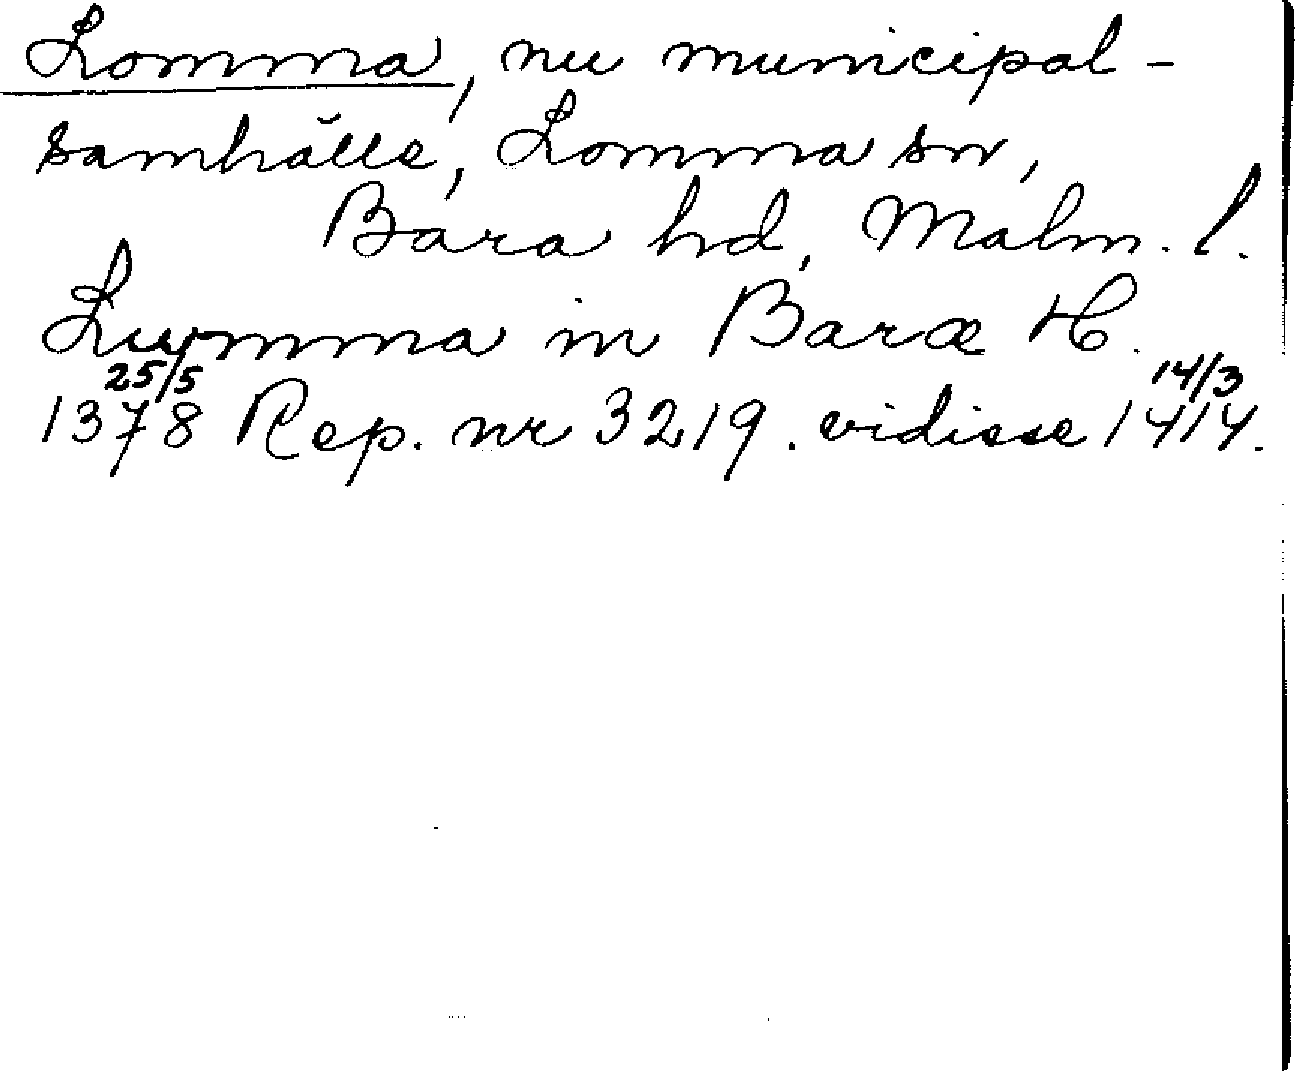 Lomma, nu municipal-
samhälle, Lomma sn,
Bara hd, Malm. l.
Lumma in Baræ H.
25/5 14/3
1378 Rep. nr 3219. vidisse 1414.